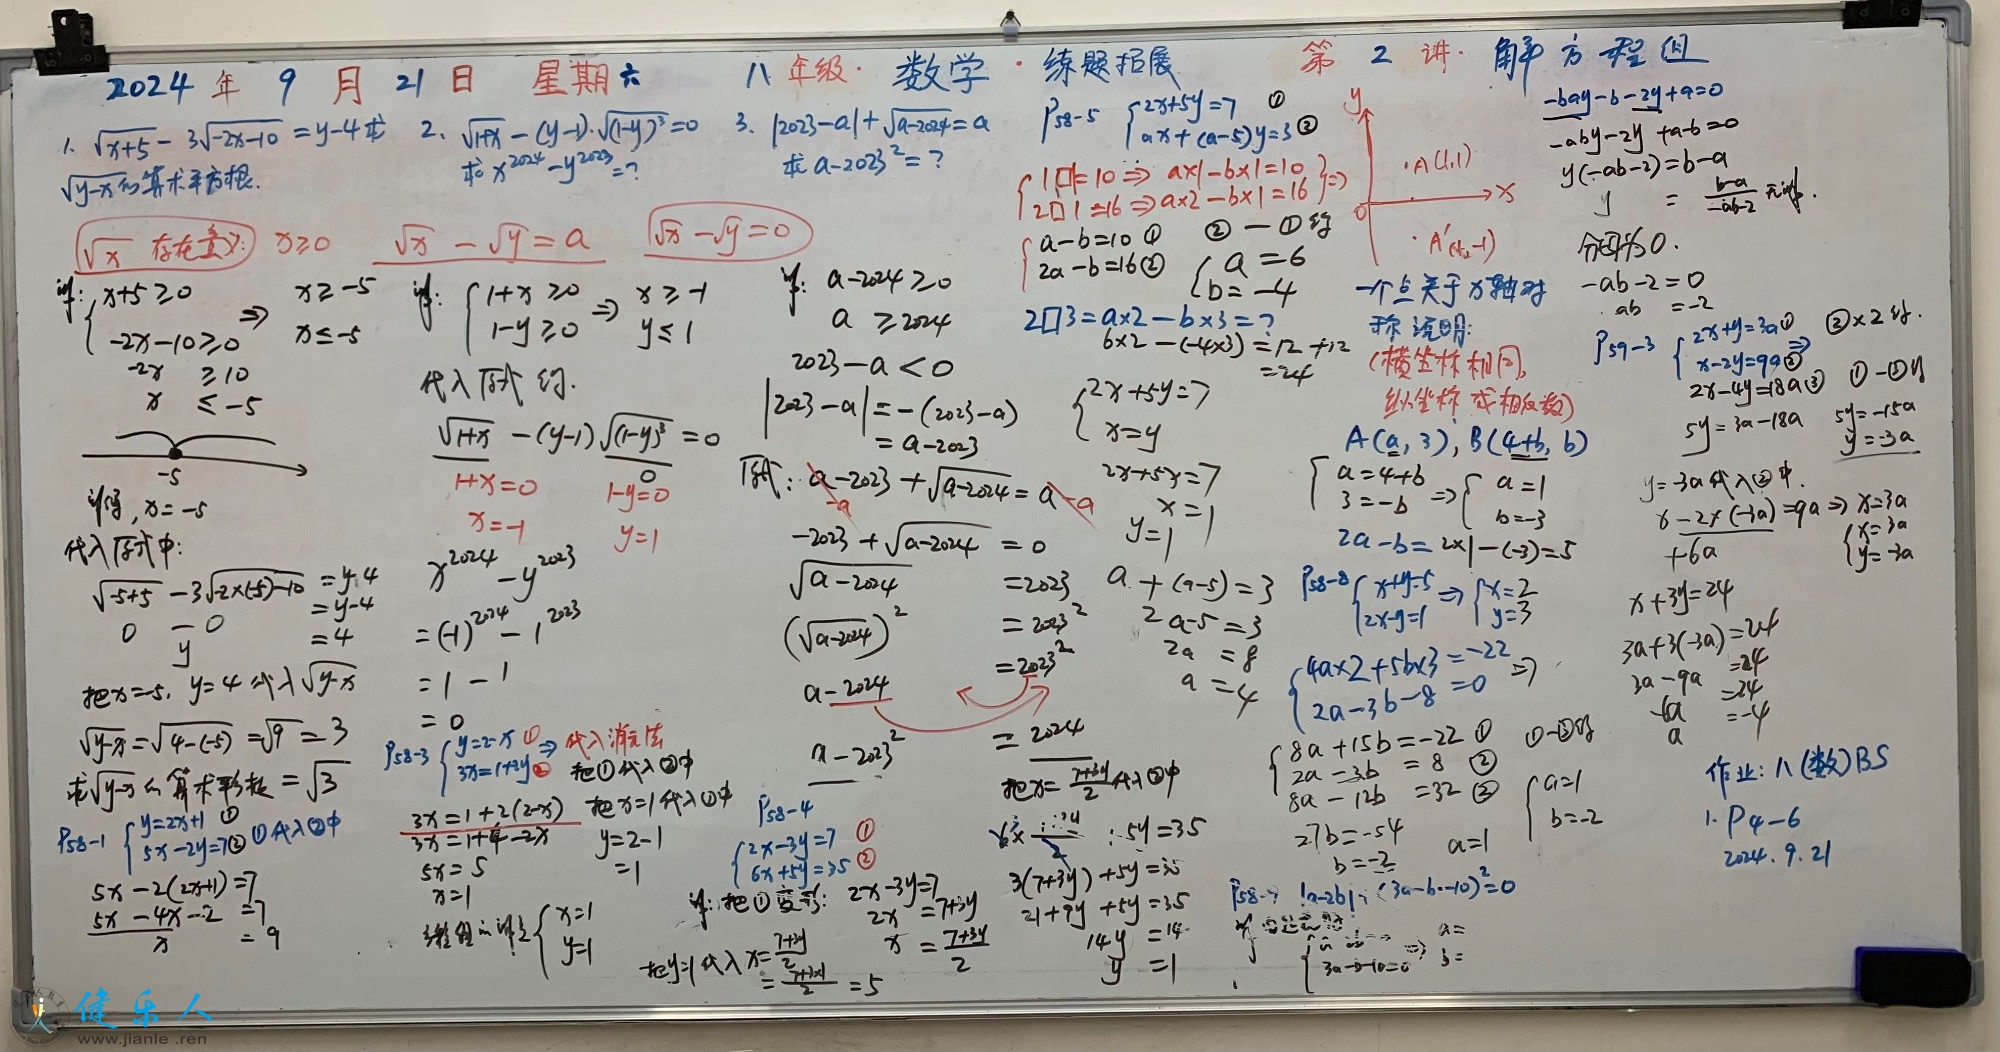 2024年 9月21日 星期六 八年级·数学·练题拓展 第2讲·解方程组
1. √(x+5) - 3√(-2x-10) = y-4 求
√(y-x)的算术平方根.
2. √(1+x) - (y-1)·√(1-y)³ = 0
求 x²⁰²⁴ - y²⁰²³ = ?
3. |2023-a| + √(a-2024) = a
求 a-2023² = ?
√x 存在意义: x≥0
√x - √y = a
√x - √y = 0
解: { x+5≥0
-2x-10≥0
⇒ x≥-5
x≤-5
-2x ≥10
x ≤-5
-5
解得, x=-5
代入原式中:
√(-5+5) - 3√(-2×(-5)-10) = y-4
0 - 0 = y-4
y = 4
把x=-5, y=4代入√(y-x)
√(y-x) = √(4-(-5)) = √9 = 3
求√(y-x)的算术平方根 = √3
P58-1 { y=2x+1 ①
5x-2y=7 ② ①代入②中
5x-2(2x+1)=7
5x-4x-2 =7
x = 9
解: { 1+x≥0
1-y≥0
⇒ x≥-1
y≤1
代入原式 的.
√(1+x) - (y-1)√(1-y)³ = 0
0
1+x=0 1-y=0
x=-1 y=1
x²⁰²⁴ - y²⁰²³
= (-1)²⁰²⁴ - 1²⁰²³
= 1 - 1
= 0
P58-3 { y=2-x ①
3x=1+2y ②
⇒ 代入消元法
把①代入②中
3x=1+2(2-x)
3x=1+4-2x
5x=5
x=1
把x=1代入①中
y=2-1
=1
{ x=1
y=1
解: a-2024≥0
a ≥2024
2023-a<0
|2023-a| = -(2023-a)
= a-2023
原式: a-2023 + √(a-2024) = a
-a -a
-2023 + √(a-2024) = 0
√(a-2024) =2023
(√(a-2024))² = 2023²
a-2024 =2023²
a-2023² = 2024
P58-4
{ 2x-3y=7 ①
6x+5y=35 ②
解: 把①变形: 2x-3y=7
2x = 7+3y
x = (7+3y)/2
把x=(7+3y)/2代入②中
5y=35
3(7+3y)+5y=35
21+9y+5y=35
14y =14
y =1
把y=1代入x=(7+3y)/2
= 5
P58-5 { 2x+5y=7 ①
ax+(a-5)y=3 ②
{ 1□1=10 ⇒ a×1-b×1=10
2□1=16 ⇒ a×2-b×1=16 } ⇒
{ a-b=10 ①
2a-b=16 ②
②-①的
{ a=6
b=-4
2□3=a×2-b×3=?
6×2-(-4×3)=12+12
=24
{ 2x+5y=7
x=y
2x+5x=7
x=1
y=1
a+(a-5)=3
2a-5=3
2a =8
a =4
y
x
0
A(1,1)
一个点关于x轴对
称说明:
(横坐标相同,
纵坐标成相反数)
A(a, 3), B(4+b, b)
{ a=4+b
3=-b
⇒ { a=1
b=-3
2a-b=2×1-(-3)=5
P58-8 { x+y=5
2x-y=1
⇒ { x=2
y=3
{ 4a×2+5b×3=-22
2a-3b-8 =0 ⇒
{ 8a+15b=-22 ①
2a-3b =8 ②
8a-12b =32 ③
①-③的
27b=-54
b=-2
a=1
{ a=1
b=-2
|a-2b| (3a-b-10)²=0
3a-b-10=0
a=
b=
-bay-b-2y+a=0
-aby-2y+a-b=0
y(-ab-2)=b-a
y = (b-a)/(-ab-2) 无解.
分母为0.
-ab-2=0
ab =-2
P59-3 { 2x+y=3a ①
x-2y=9a ②
⇒ ②×2的.
2x-4y=18a ③ ①-③的
5y=3a-18a 5y=-15a
y=-3a
y=-3a代入②中.
x-2×(-3a)=9a ⇒ x=3a
+6a
{ x=3a
y=-3a
x+3y=24
3a+3(-3a)=24
3a-9a =24
-6a =24
a =-4
作业: 八(数)BS
1. P4-6
2024.9.21
健乐人
www.jianle.ren